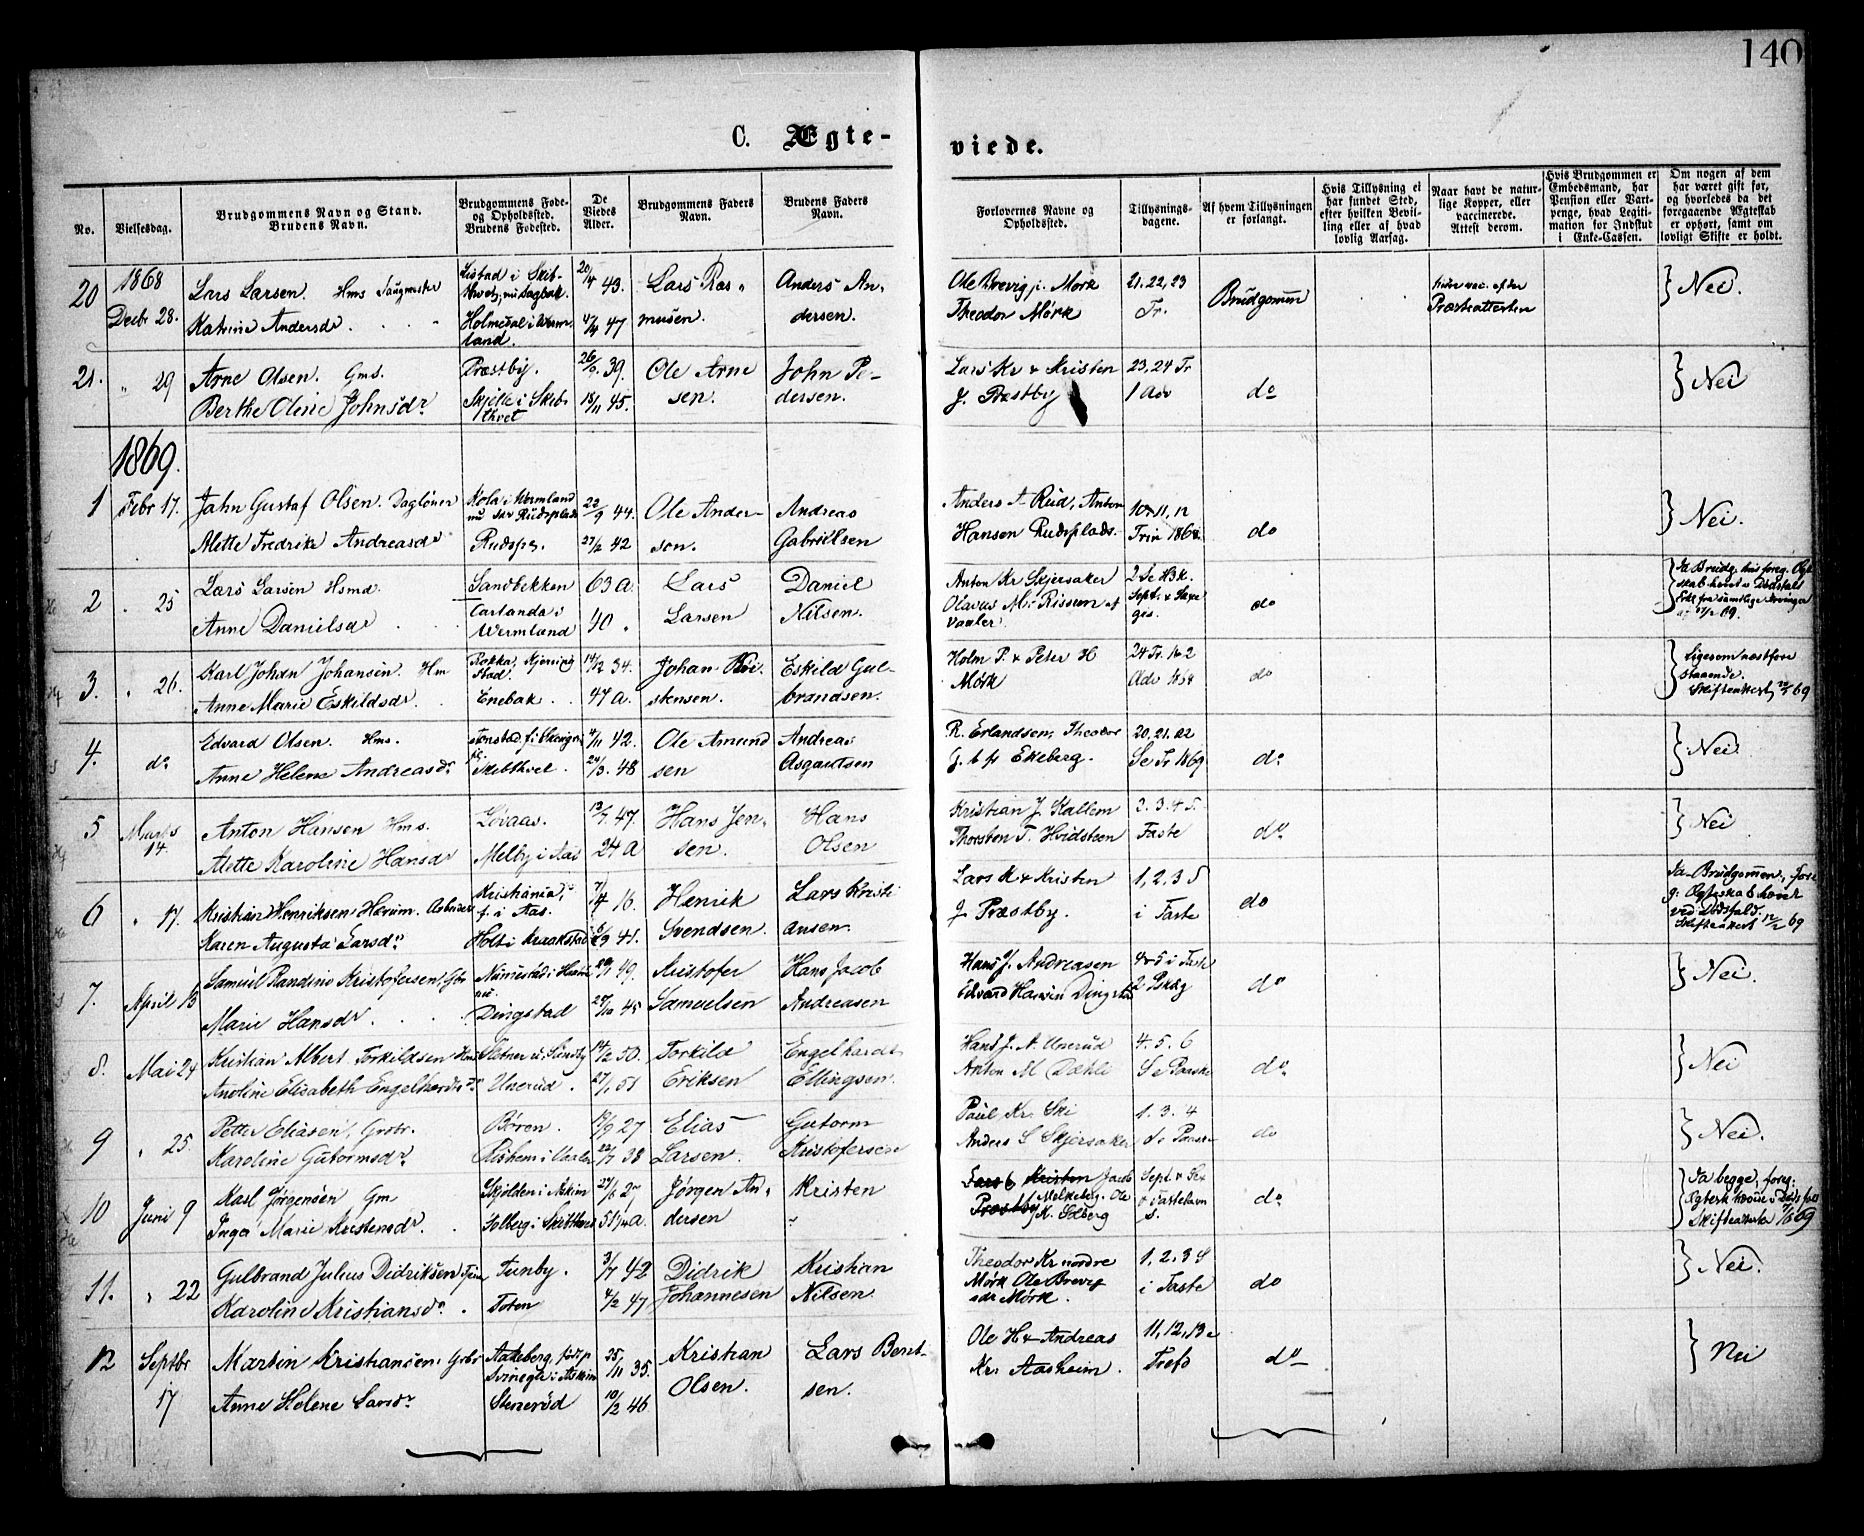 140
C. Ægte-
viede.
No.
Vielsesdag.
Brudgommens Navn og Stand.
Brudens Navn.
Brudgommens Føde-
og Opholdssted.
Brudens Fødested.
De
Viedes
Alder.
Brudgommens Faders
Navn.
Brudens Faders
Navn.
Forlovernes Navne og
Opholdssted.
Tillysnings-
dagene.
Af hvem Tillysningen
er forlangt.
Hvis Tillysning ei
har fundet Sted,
efter hvilken Bevil-
ling eller af hvad
lovlig Aarsag.
Naar havt de natur-
lige Kopper, eller
vaccinerede.
Attest derom.
Hvis Brudgommen er
Embedsmand, har
Pension eller Vart-
penge, hvad Legiti-
mation for Indskud
i Enke-Cassen.
Om nogen af dem
har været gift før,
og hvorledes da det
foregaaende Ægteskab
er ophørt, samt om
lovligt Skifte er holdt.
20 1868 Decbr 28.
Lars Larsen. Hms
Katrine Andersdr
20/4 43.
47
Lars Ras-
musen.
Anders An-
dersen.
Ole Brevig p. Mørk
Theodor Mørk
21, 22, 23
Tr.
Brudgommen
Præsteattesten
Nei.
21. " 29
Arne Olsen. Gms.
Berthe Oline Johnsdr
Præstby.
Skjelle i Skib-
thvet
39.
18/11 45.
Ole Arne
sen.
John Pe-
dersen.
Lars Kr & Kristen
J. Præstby
23, 24 Tr
1 Adv
do
Nei
1869.
1 Febr 17.
Jahn Gustaf Olsen. Dagløner
Alette Fredrike Andreasdr
Kola i Wermland
22/9 44.
27/2 42
Ole Ander-
sen.
Andreas
Gabrillsen
Anders A Rud, Anton
Hansen Rudsplads.
10, 11, 12
Trin 1868
do
Nei.
2 . 25
Lars Larsen Hsmd.
Anne Danielsdr
Sandbekken
Wermland
63 a.
40
Lars
Larsen
Daniel
Nilsen.
Anton Kr Skjersaker
Vaaler.
do
3. " 26.
Karl Johan Johansen. Hm
Anne Marie Eskildsdr
Enebak
14/12 34.
47 a.
Johan
stensen.
Eskild Gul-
brandsen.
Holm P. & Peter H
Mørk
do
Ligesom næstfore
staaende.
4. do
Edvard Olsen. Hms.
Anne Helene Andreasdr
Skibthvet.
42.
24/3. 48
Ole Amund
sen
Andreas
Asgautsen
R. Erlandsen, Theodor
Ekeberg.
20, 21, 22
Se Tr 1869
do
Nei
5 Marts 14.
Anton Hansen Hms.
Alette Karoline Hansdr
Løvaas.
Melby i Aas
47.
24 a
Hans Jen-
sen.
Hans
Olsen
Kristian J. Kallem
Thorsten T. Hvidsteen
2. 3. 4 5.
Faste
do
Nei
6 " 17.
Kristian Henriksen Hærum.
Karen Augusta Larsdr
Kristiania,
f. i Aas.
Holt i Kraakstad
7/4 16.
41.
Henrik
Svendsen
Lars Kristi
ansen.
Lars K & Kristen
J Præstby.
1, 2, 3 S
i Faste
do
Ja Brudgommen, fore
g. Ægteskab hævet
ved Dødsfald.
7. April 15
Samuel Randinus Kristofersen, Gbr
Marie Hansdr
Dingstad
49.
27/10 45
Kristofer
Samuelsen
Hans Jacob
Andreasen
Hans J. Andreasen
Edvard Hansen Dingstad
4 & 5 i Faste
do
Nei.
8. Mai 24
Kristian Albert Torkildsen Hms
Anoline Elisabeth Engelhardsdr
Unerud.
14/2 50.
27/1 51
Torkild
Eriksen
Engelhardt
Ellingsen.
Hans J. A. Unerud
Anton M Dæhli
4. 5. 6
S e Paaske
do
Nei
9 " 25.
Petter Eliasen, Grbr.
Karoline Gutormsdr
Børen.
27
22/7 38
Elias
Larsen.
Gutorm
Kristofersen
Paul Kr. Ski
Anders S Skjersaker
1. 3. 4
do Paaske
do
Nei.
10 Juni 9
Karl Jørgensen Gm
Inga Marie Kristensdr
Skjolden i Askim
Solberg i Skibthvet
Jørgen An-
dersen
Kristen
"
Lars & Kristen Jacob
Præstby Molkeberg. Ole
K. Solberg
do
Ja begge, foreg:
11. " 22
Gulbrand Julius Didriksen
Karoline Kristiansdr
Tunby.
Toten
3/7 42
4/2 47
Didrik
Johannesen
Kristian
Nilsen.
Theodor Kr nordre
Mørk Ole Brevig
sdr Mørk.
1, 2, 3 S
i Faste
do
Nei.
12 Septbr 17
Martin Kristiansen, Grbr
Anne Helene Larsdr
Aakeberg, født p
Svinegli i Askim
Stenerud
25/11 35.
10/2 46
Kristian
Olsen.
Lars Bent-
sen.
Ole H & Andreas
Kr. Aasheim.
11, 12, 13 e
Trefo
do
Nei